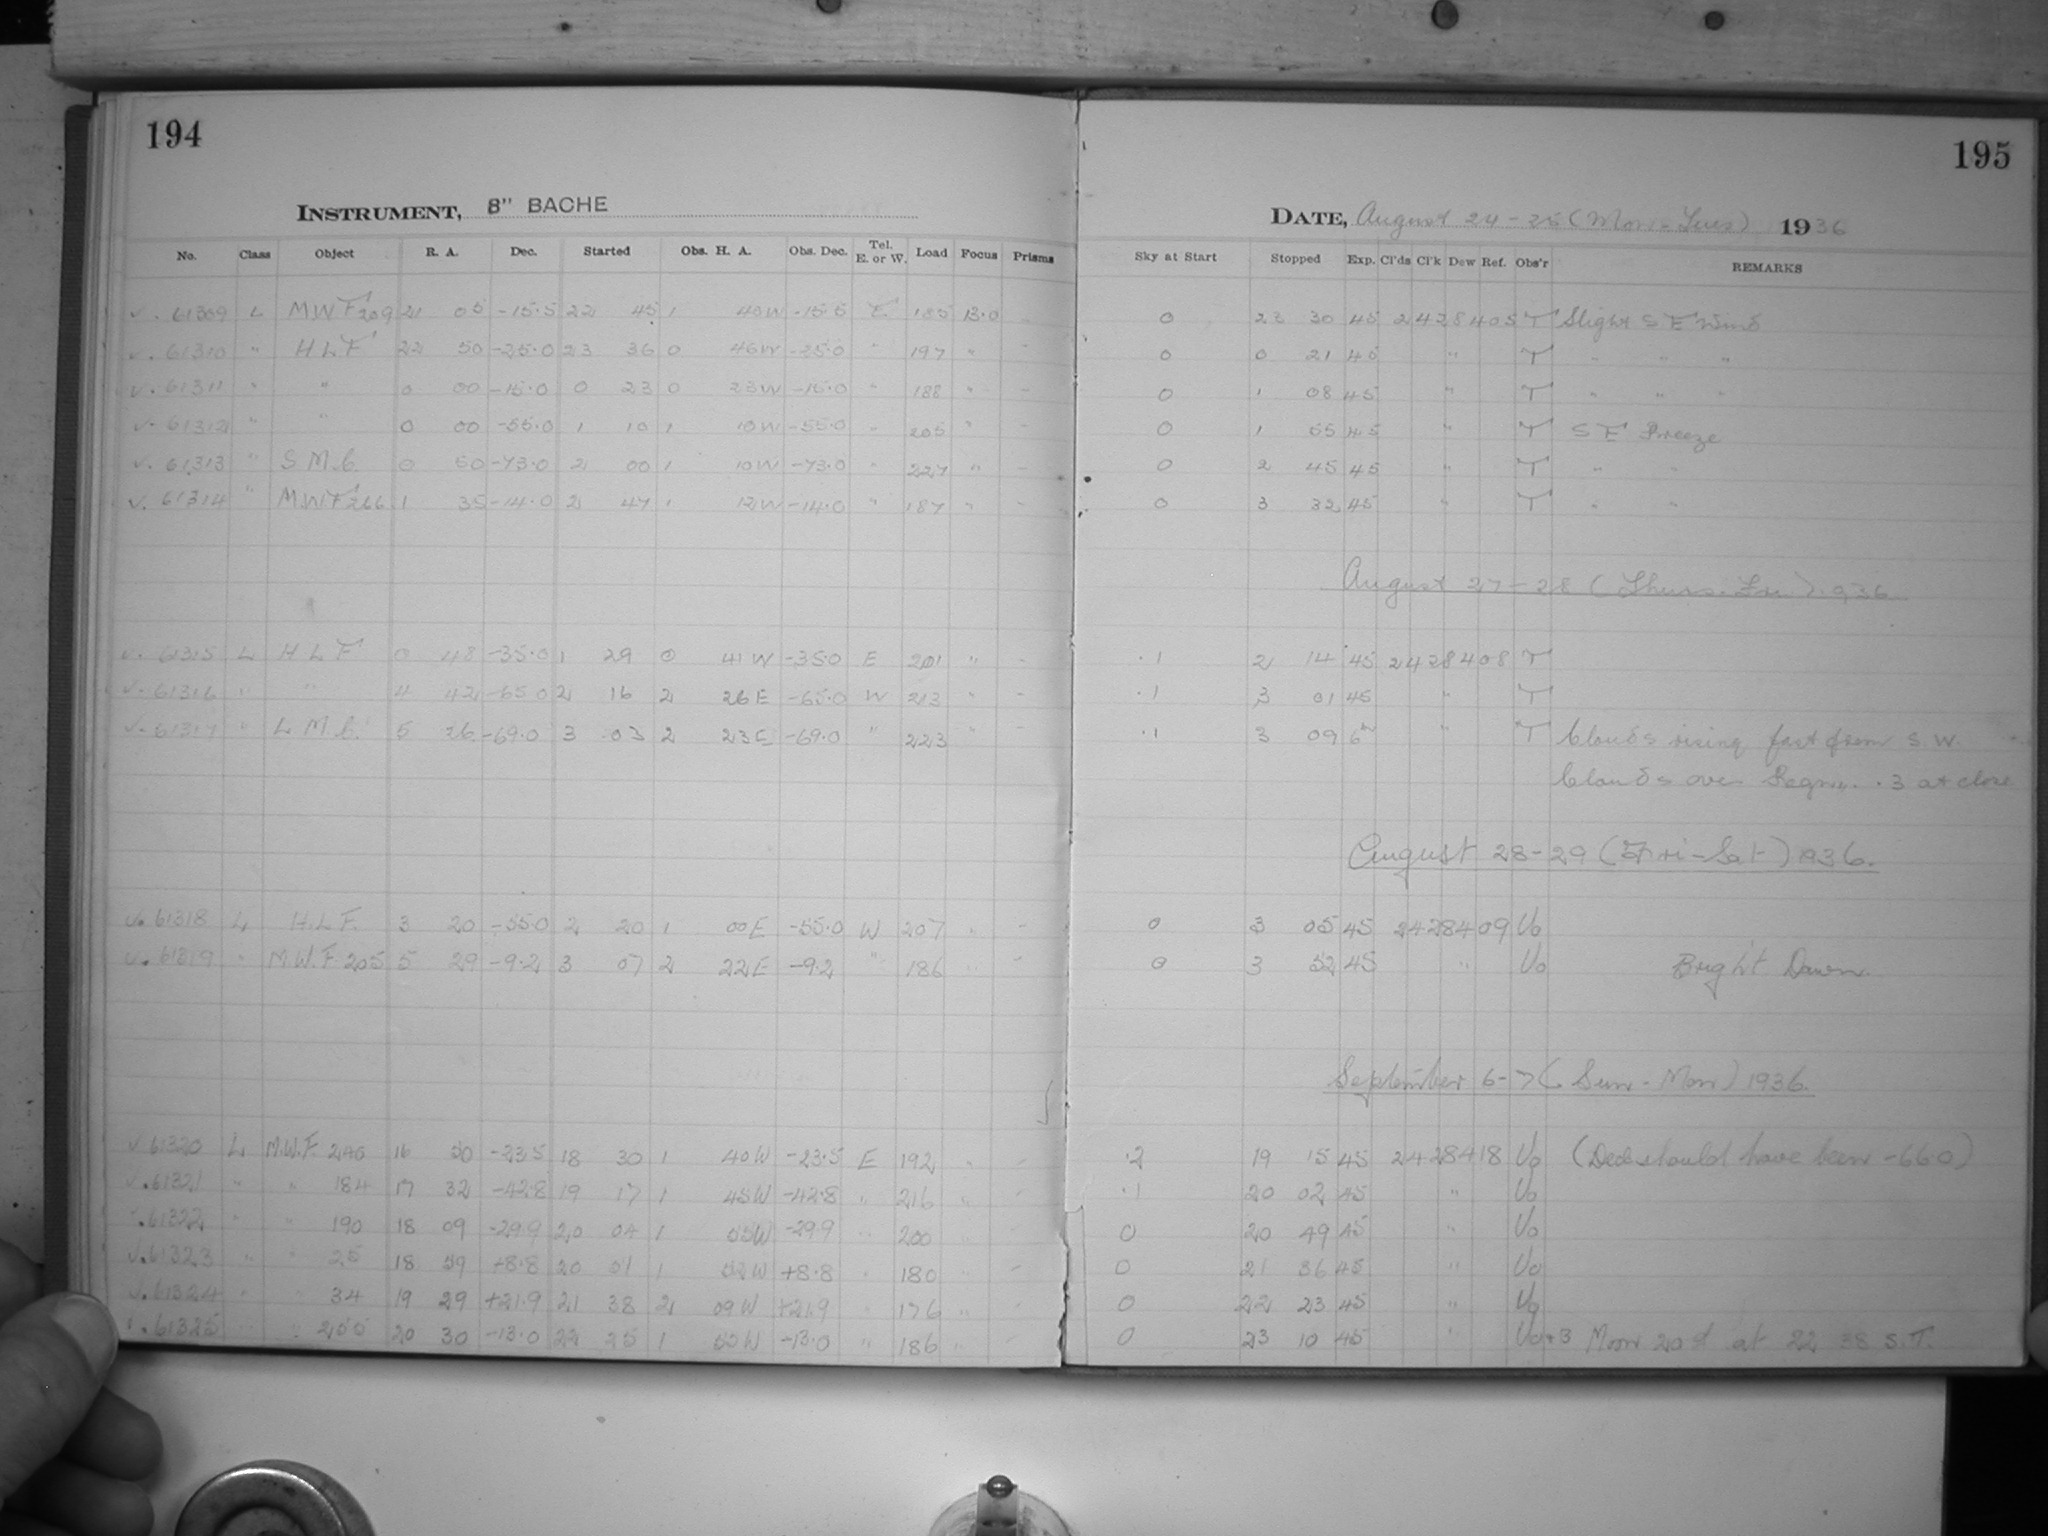 194
INSTRUMENT, 8" BACHE
No. Class Object R. A. Dec. Started Obs. H. A. Obs. Dec. Tel. E. or W. Load Focus Prisms
v. 61309 L M.W.F 209 21 05 -15.5 22 45 1 40W -15.5 E 185 13.0
v. 61310 " H L F 22 50 -25.0 23 36 0 46W -25.0 " 197 " -
v. 61311 " " 0 00 -15.0 0 23 0 23W -15.0 " 188 " -
v. 61312 " " 0 00 -55.0 1 10 1 10W -55.0 " 205 " -
v. 61313 " S M.C. 0 50 -73.0 2 00 1 10W -73.0 " 227 " -
v. 61314 " M.W.F 266 1 35 -14.0 2 47 1 12W -14.0 " 187 " -
v. 61315 L H L F 0 48 -35.0 1 29 0 41W -35.0 E 201 " -
v. 61316 " " 4 42 -65.0 2 16 2 26E -65.0 W 213 " -
v. 61317 " L M.C. 5 26 -69.0 3 03 2 23E -69.0 " 223 " -
v. 61318 L H.L.F. 3 20 -55.0 2 20 1 00E -55.0 W 207 " -
v. 61319 " M.W.F. 205 5 29 -9.2 3 07 2 22E -9.2 " 186 " -
v. 61320 L M.W.F. 16 50 -23.5 18 30 1 40W -23.5 E 192 " -
v. 61321 " " 184 17 32 -42.8 19 17 1 45W -42.8 " 216 " -
v. 61322 " " 190 18 09 -29.9 20 04 1 55W -29.9 " 200 " -
v. 61323 " " 25 18 59 +8.8 20 51 1 52W +8.8 " 180 " -
v. 61324 " " 34 19 29 +21.9 21 38 2 09W +21.9 " 176 " -
v. 61325 " " 20 30 -13.0 22 25 1 55W -13.0 " 186 " -
195
DATE, August 24-25 (Mon-Tues) 1936
Sky at Start Stopped Exp. Cl'ds Cl'k Dew Ref. Obs'r REMARKS
0 23 30 45 2428405 T Slight S E Wind
0 0 21 45 " T " " "
0 1 08 45 " T " " "
0 1 55 45 " T S E Breeze
0 2 45 45 " T " "
0 3 32 45 " T " "
August 27-28 (Thurs-Fri) 1936
.1 2 14 45 2428408 T
.1 3 01 45 " T
.1 3 09 6m " T Clouds rising fast from S.W.
Clouds over Region. .3 at close
August 28-29 (Fri-Sat) 1936.
0 3 05 45 2428409 Uo
0 3 52 45 " Uo Bright Dawn.
September 6-7 (Sun-Mon) 1936.
.2 19 15 45 2428418 Uo (Dec should have been -66.0)
.1 20 02 45 " Uo
0 20 49 45 " Uo
0 21 36 45 " Uo
0 22 23 45 " Uo
0 23 10 45 " Uo+B Moon at 22 38 S.T.